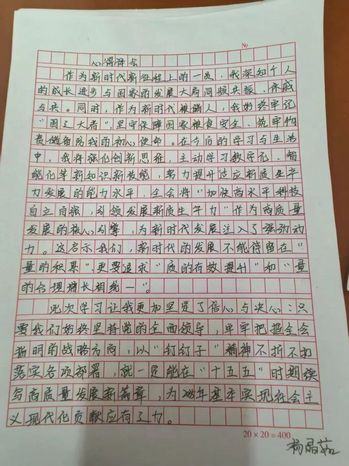 No
心得体会
作为新时代新征程上的一员，我深知个人
的成长进步与国家的发展大局同频共振、休戚
与共。同时，作为新时代被辅人，我始终牢记
“国之大者”，坚守保障国家粮食安全、筑牢物
资储备防线的初心使命。在今后的学习与生活
中，我将强化创新思维，主动学习数字化、智
能化等新知识新技能，努力提升适应新质生产
力发展的能力水平，全会将“加快高水平科技
自立自强，引领发展新质生产力”作为高质量
发展的核心引擎，为新时代发展注入了强劲动
力。这启示我们，新时代的发展不能停留在
“量的积累”，更要追求“质的有效提升”和“量
的合理增长相统一”。
此次学习让我更加坚定了信心与决心：只
要我们始终坚持党的全面领导，牢牢把握全会
指明的战略方向，以“钉钉子”精神不折不扣
落实各项部署，就一定能在“十五五”时期续
写高质量发展新篇章，为2035年基本实现社会主
义现代化贡献应有之力。
20×20=400